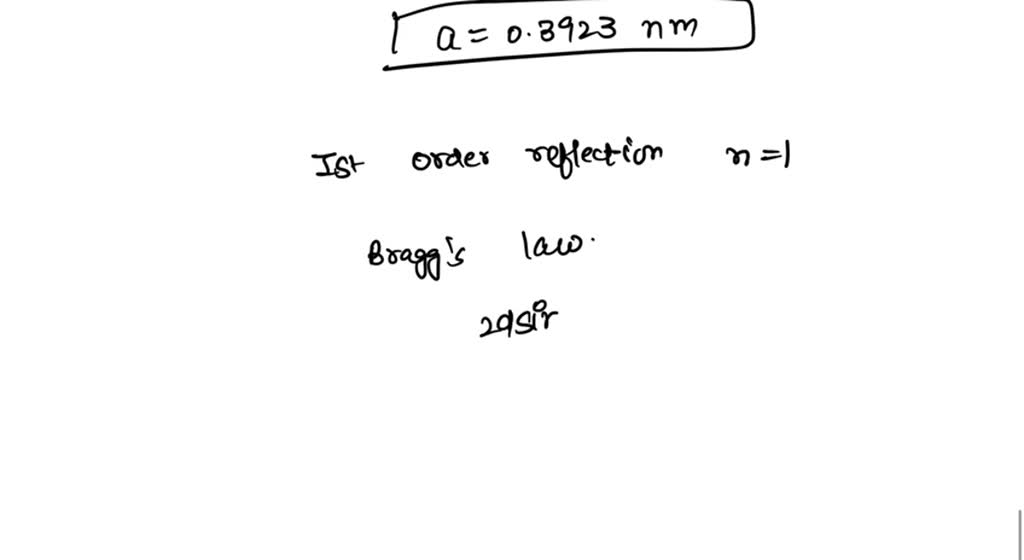 a = 0.3923 nm
Ist order reflection n=1
Bragg's law.
2dsin